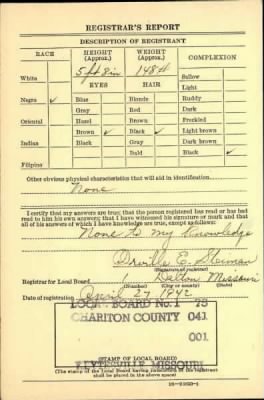 REGISTRAR'S REPORT
DESCRIPTION OF REGISTRANT
RACE HEIGHT (Approx.) WEIGHT (Approx.) COMPLEXION
White 5 ft 8 in 148 # Sallow
EYES HAIR Light
Negro ✓ Blue Blonde Ruddy
Gray Red Dark
Oriental Hazel Brown Freckled
Brown ✓ Black ✓ Light brown
Indian Black Gray Dark brown
Bald Black ✓
Filipino
Other obvious physical characteristics that will aid in identification
None
I certify that my answers are true; that the person registered has read or has had
read to him his own answers; that I have witnessed his signature or mark and that
all of his answers of which I have knowledge are true, except as follows:
None to my Knowledge
Orville E.
(Signature of registrar)
Registrar for Local Board 1 Dalton Missouri
(Number) (City or county)
Date of registration April 27 1942
LOCAL BOARD NO. 1 79
CHARITON COUNTY 041
001
KEYTESVILLE, MISSOURI
(STAMP OF LOCAL BOARD)
(The stamp of the Local Board having jurisdiction of the registrant
shall be placed in the above space)